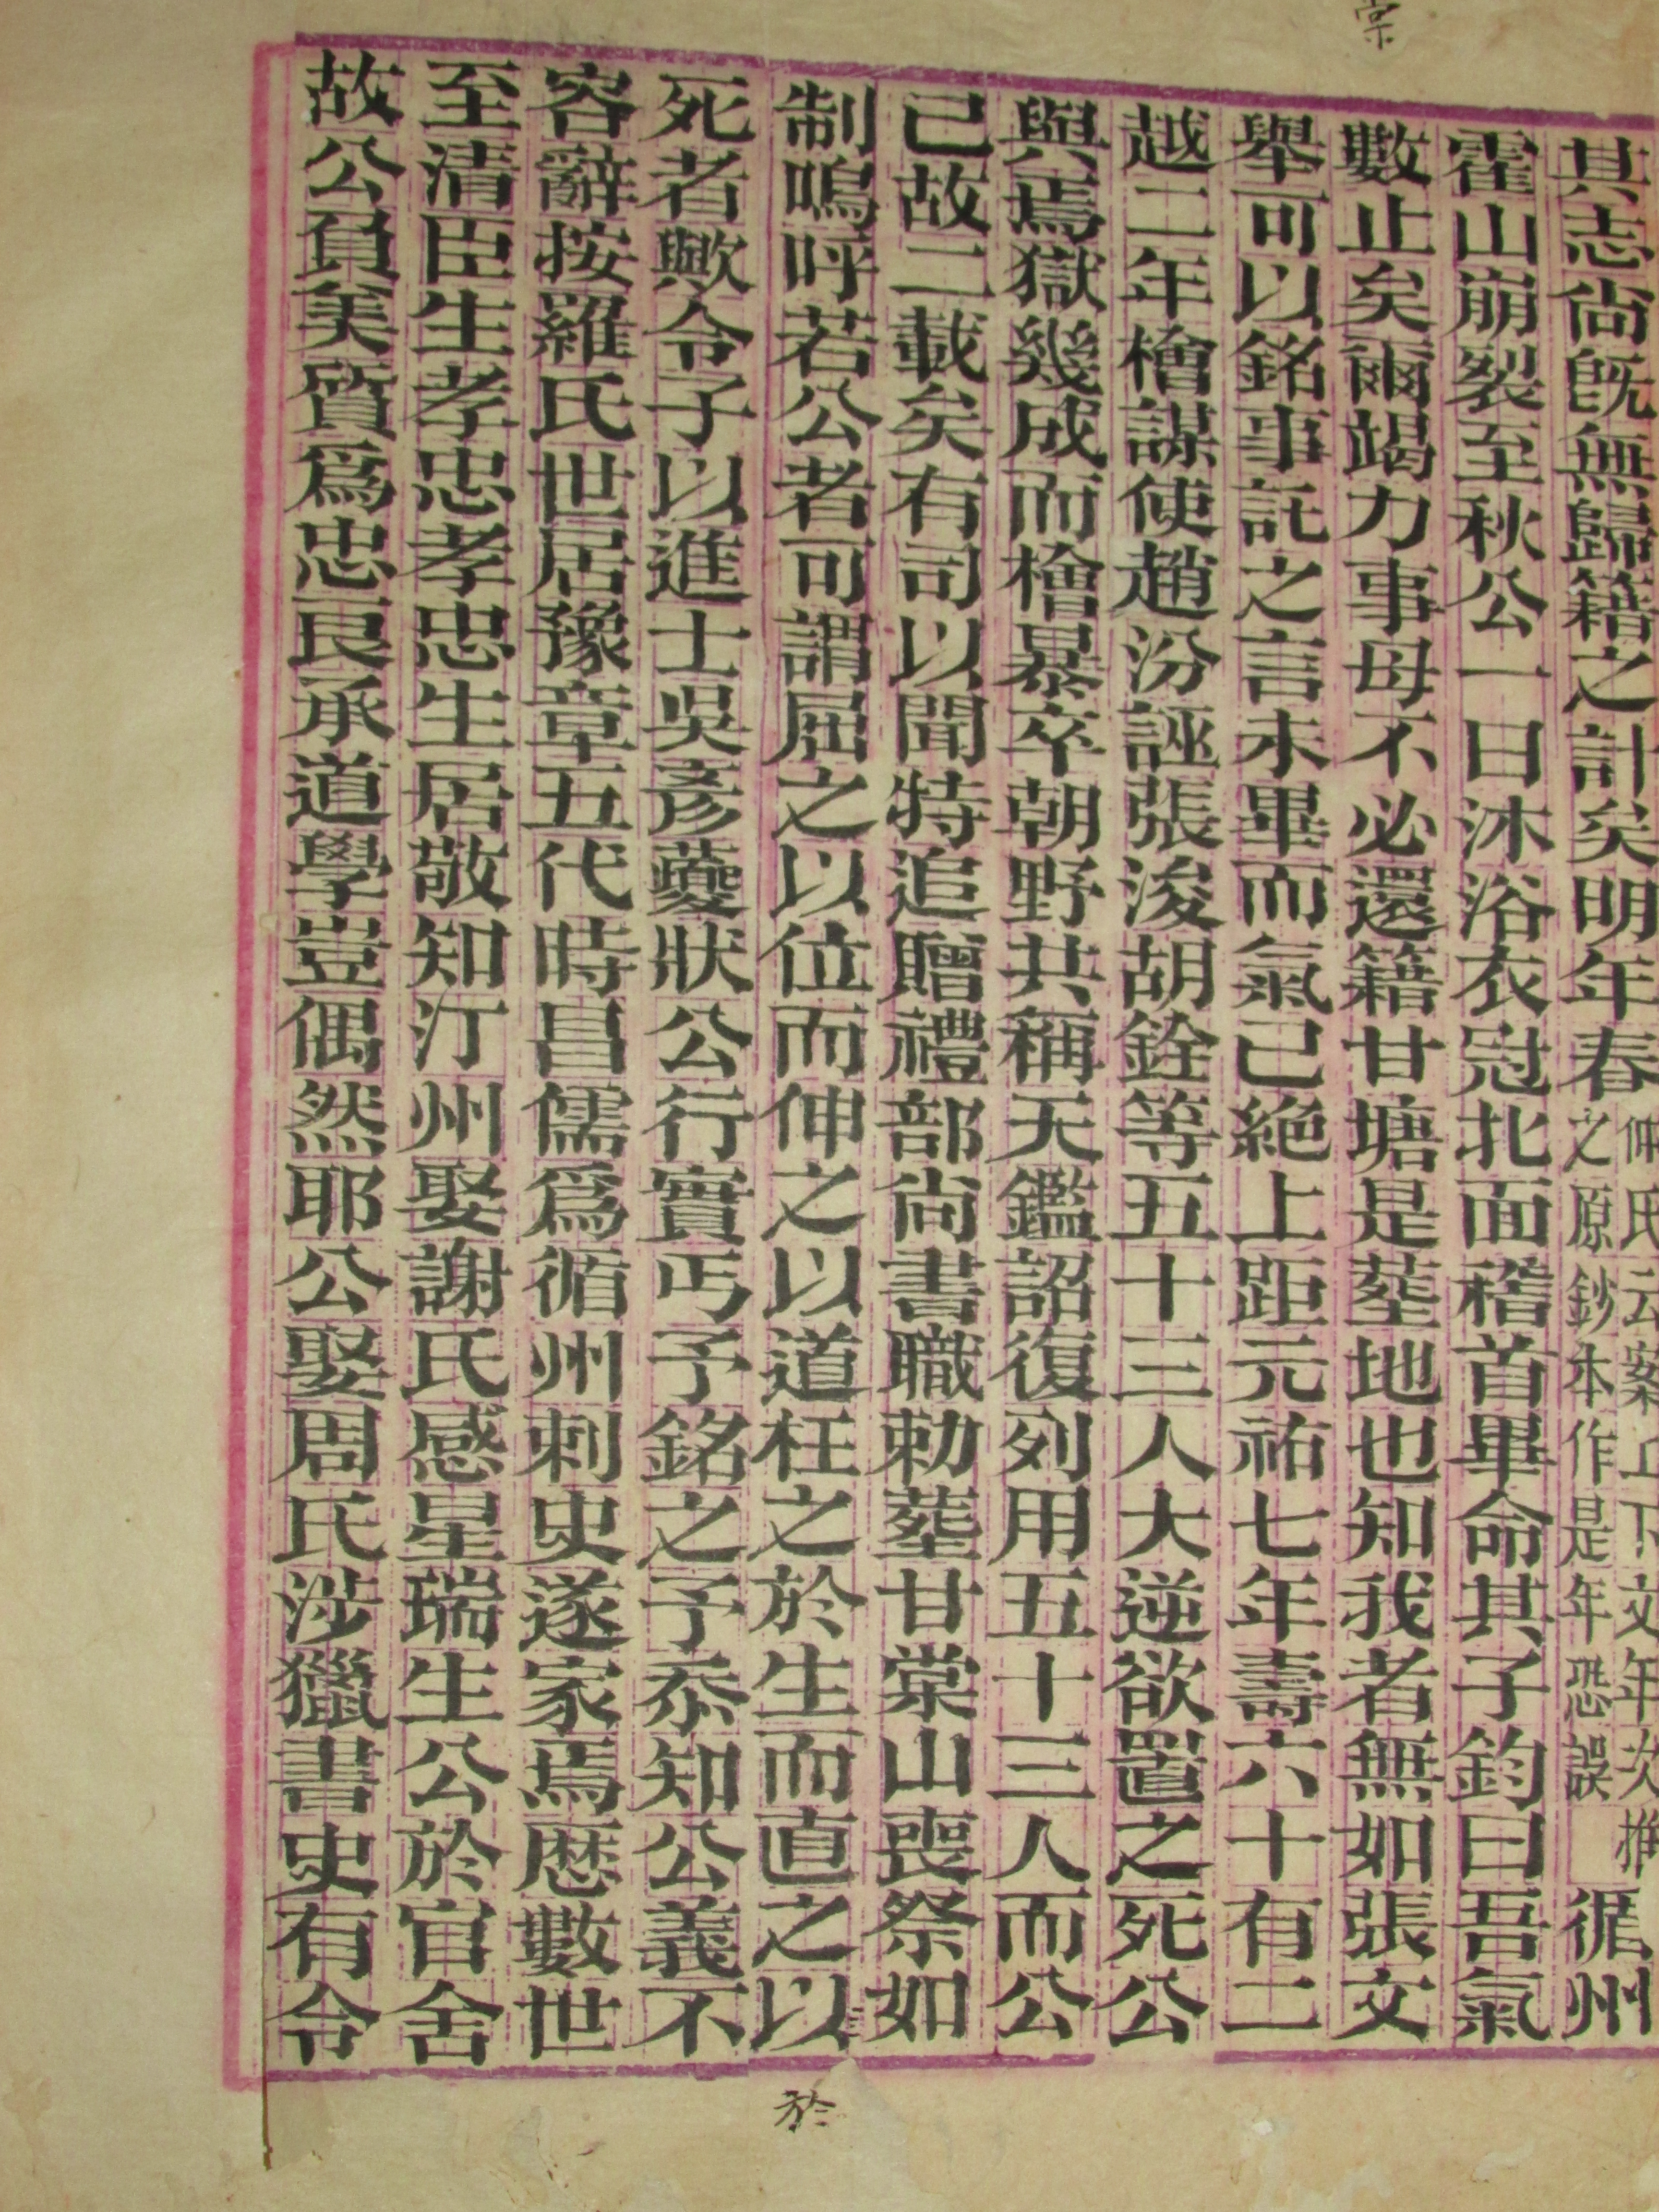 棠
其志尙旣無歸籍之計矣明年春
仲氏云案上下文年次推
之原鈔本作是年恐誤
循州
霍山崩裂至秋公一日沐浴衣冠北面稽首畢命其子鈞曰吾氣
數止矣爾竭力事母不必還籍甘塘是塟地也知我者無如張文
舉可以銘事託之言未畢而氣已絕上距元祐七年壽六十有二
越二年檜謀使趙汾誣張浚胡銓等五十三人大逆欲置之死公
與焉獄幾成而檜暴卒朝野共稱天鑑詔復列用五十三人而公
已故二載矣有司以聞特追贈禮部尙書職勅塟甘棠山喪祭如
制嗚呼若公者可謂屈之以位而伸之以道枉之於生而直之以
死者歟令子以進士吳彥夔狀公行實丐予銘之予忝知公義不
容辭按羅氏世居豫章五代時昌儒爲循州刺史遂家焉歷數世
至清臣生孝忠孝忠生居敬知汀州娶謝氏感星瑞生公於官舍
故公負美質爲忠良承道學豈偶然耶公娶周氏涉獵書史有令
於